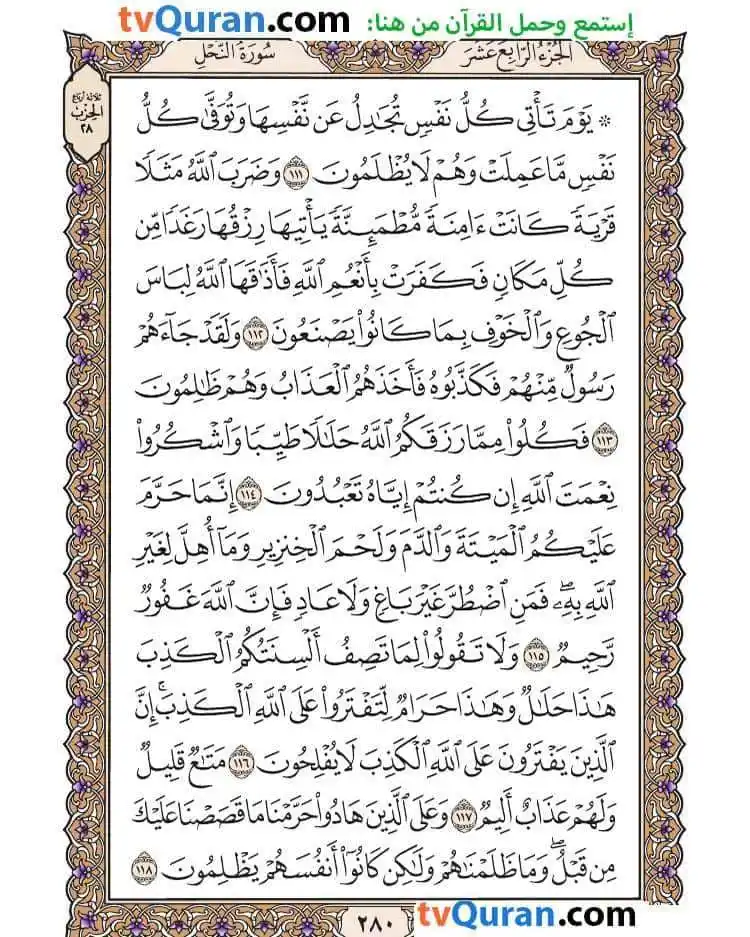 tvQuran.com إستمع وحمل القرآن من هنا:
الجُزْءُ الرَّابِعَ عَشَرَ سُورَةُ النَّحْلِ
ثلاثة أرباع
الحِزْب
٢٨
۞ يَوْمَ تَأْتِى كُلُّ نَفْسٍ تُجَٰدِلُ عَن نَّفْسِهَا وَتُوَفَّىٰ كُلُّ
نَفْسٍ مَّا عَمِلَتْ وَهُمْ لَا يُظْلَمُونَ ١١١ وَضَرَبَ ٱللَّهُ مَثَلًا
قَرْيَةً كَانَتْ ءَامِنَةً مُّطْمَئِنَّةً يَأْتِيهَا رِزْقُهَا رَغَدًا مِّن
كُلِّ مَكَانٍ فَكَفَرَتْ بِأَنْعُمِ ٱللَّهِ فَأَذَٰقَهَا ٱللَّهُ لِبَاسَ
ٱلْجُوعِ وَٱلْخَوْفِ بِمَا كَانُوا۟ يَصْنَعُونَ ١١٢ وَلَقَدْ جَآءَهُمْ
رَسُولٌ مِّنْهُمْ فَكَذَّبُوهُ فَأَخَذَهُمُ ٱلْعَذَابُ وَهُمْ ظَٰلِمُونَ
١١٣ فَكُلُوا۟ مِمَّا رَزَقَكُمُ ٱللَّهُ حَلَٰلًا طَيِّبًا وَٱشْكُرُوا۟
نِعْمَتَ ٱللَّهِ إِن كُنتُمْ إِيَّاهُ تَعْبُدُونَ ١١٤ إِنَّمَا حَرَّمَ
عَلَيْكُمُ ٱلْمَيْتَةَ وَٱلدَّمَ وَلَحْمَ ٱلْخِنزِيرِ وَمَآ أُهِلَّ لِغَيْرِ
ٱللَّهِ بِهِۦۖ فَمَنِ ٱضْطُرَّ غَيْرَ بَاغٍ وَلَا عَادٍ فَإِنَّ ٱللَّهَ غَفُورٌ
رَّحِيمٌ ١١٥ وَلَا تَقُولُوا۟ لِمَا تَصِفُ أَلْسِنَتُكُمُ ٱلْكَذِبَ
هَٰذَا حَلَٰلٌ وَهَٰذَا حَرَامٌ لِّتَفْتَرُوا۟ عَلَى ٱللَّهِ ٱلْكَذِبَۚ إِنَّ
ٱلَّذِينَ يَفْتَرُونَ عَلَى ٱللَّهِ ٱلْكَذِبَ لَا يُفْلِحُونَ ١١٦ مَتَٰعٌ قَلِيلٌ
وَلَهُمْ عَذَابٌ أَلِيمٌ ١١٧ وَعَلَى ٱلَّذِينَ هَادُوا۟ حَرَّمْنَا مَا قَصَصْنَا عَلَيْكَ
مِن قَبْلُۖ وَمَا ظَلَمْنَٰهُمْ وَلَٰكِن كَانُوٓا۟ أَنفُسَهُمْ يَظْلِمُونَ ١١٨
٢٨٠ tvQuran.com